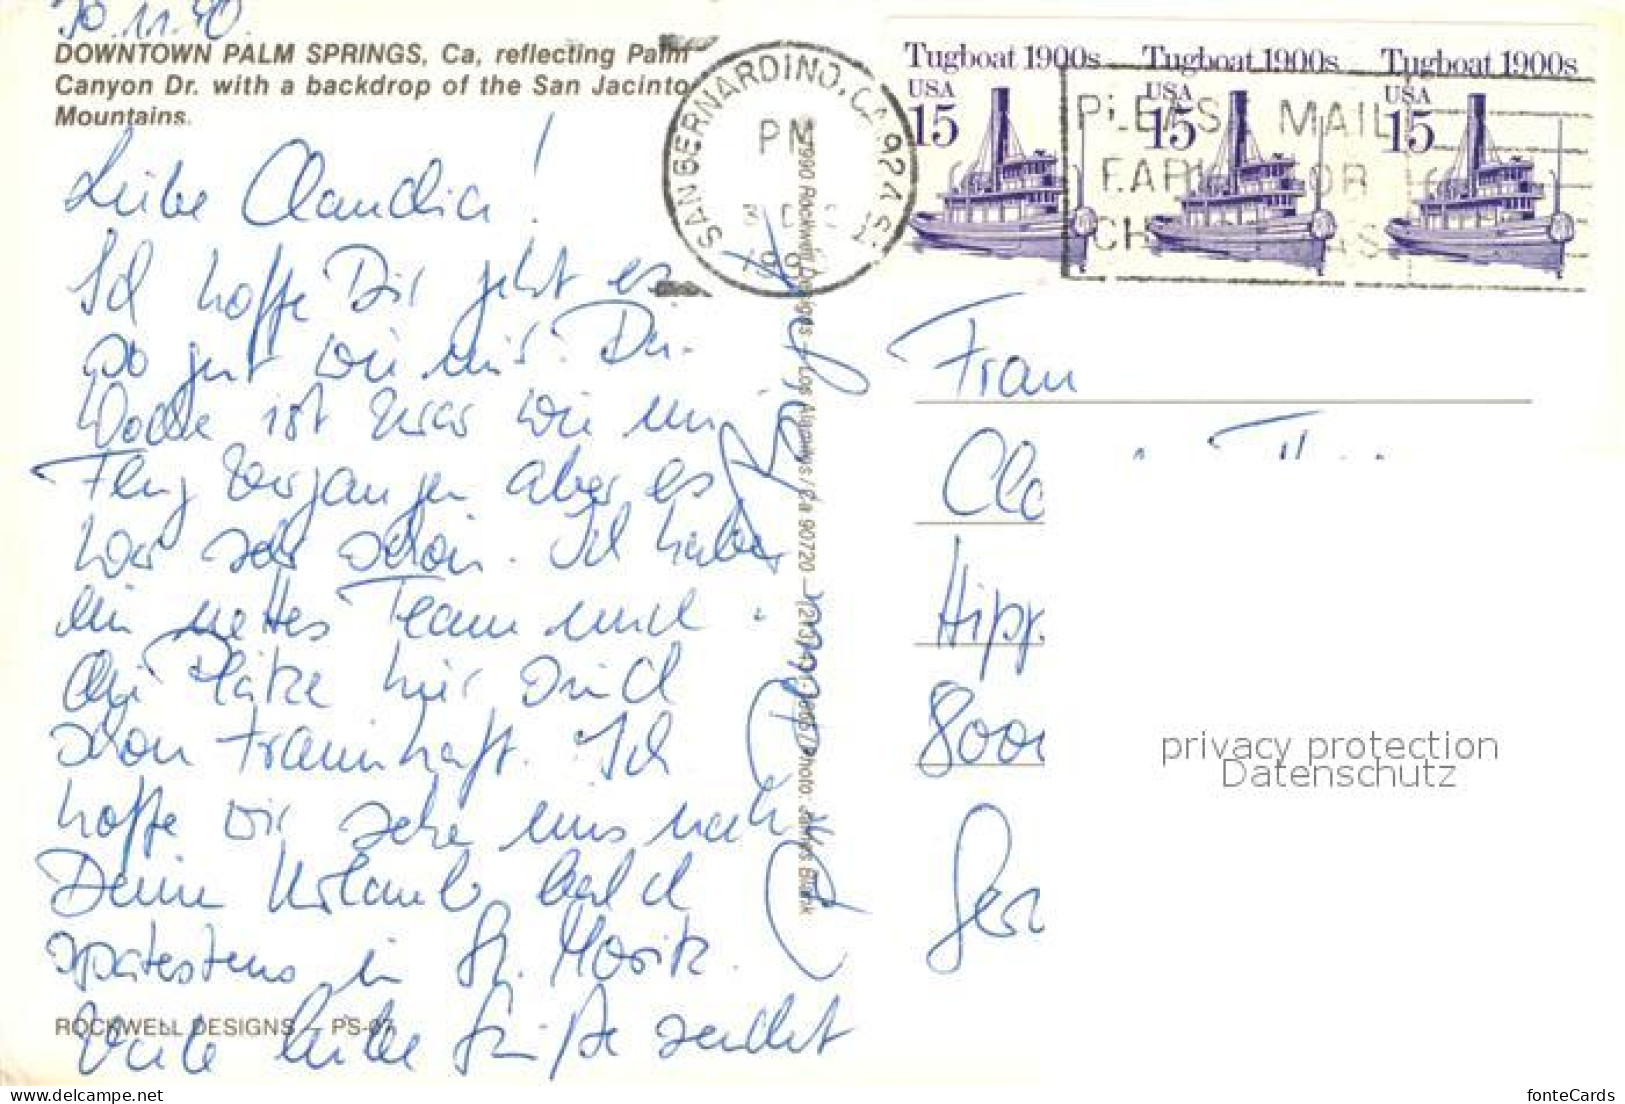 30.11.90
DOWNTOWN PALM SPRINGS, Ca, reflecting Palm
Canyon Dr. with a backdrop of the San Jacinto
Mountains.
Liebe Claudia!
Ich hoffe Dir geht es
so gut wie mir. Die
Woche ist zwar wie im
Flug vergangen aber es
war sehr schön. Ich habe
ein nettes Team und
die Plätze hier sind
schon traumhaft. Ich
hoffe wir sehen uns nach
Deinem Urlaub bald
spätestens in St. Moritz.
Viele liebe Grüße sendet
ROCKWELL DESIGNS – PS-07
© 1990 Rockwell Designs – Los Alamitos / Ca 90720 – Photo: James Blank
SAN BERNARDINO, CA 924
PM
3 DEC
Tugboat 1900s
USA
15
Tugboat 1900s
USA
15
Tugboat 1900s
USA
15
PLEASE MAIL
EARLY FOR
CHRISTMAS
Frau
Hipp
800
Ger
privacy protection
Datenschutz
fonteCards